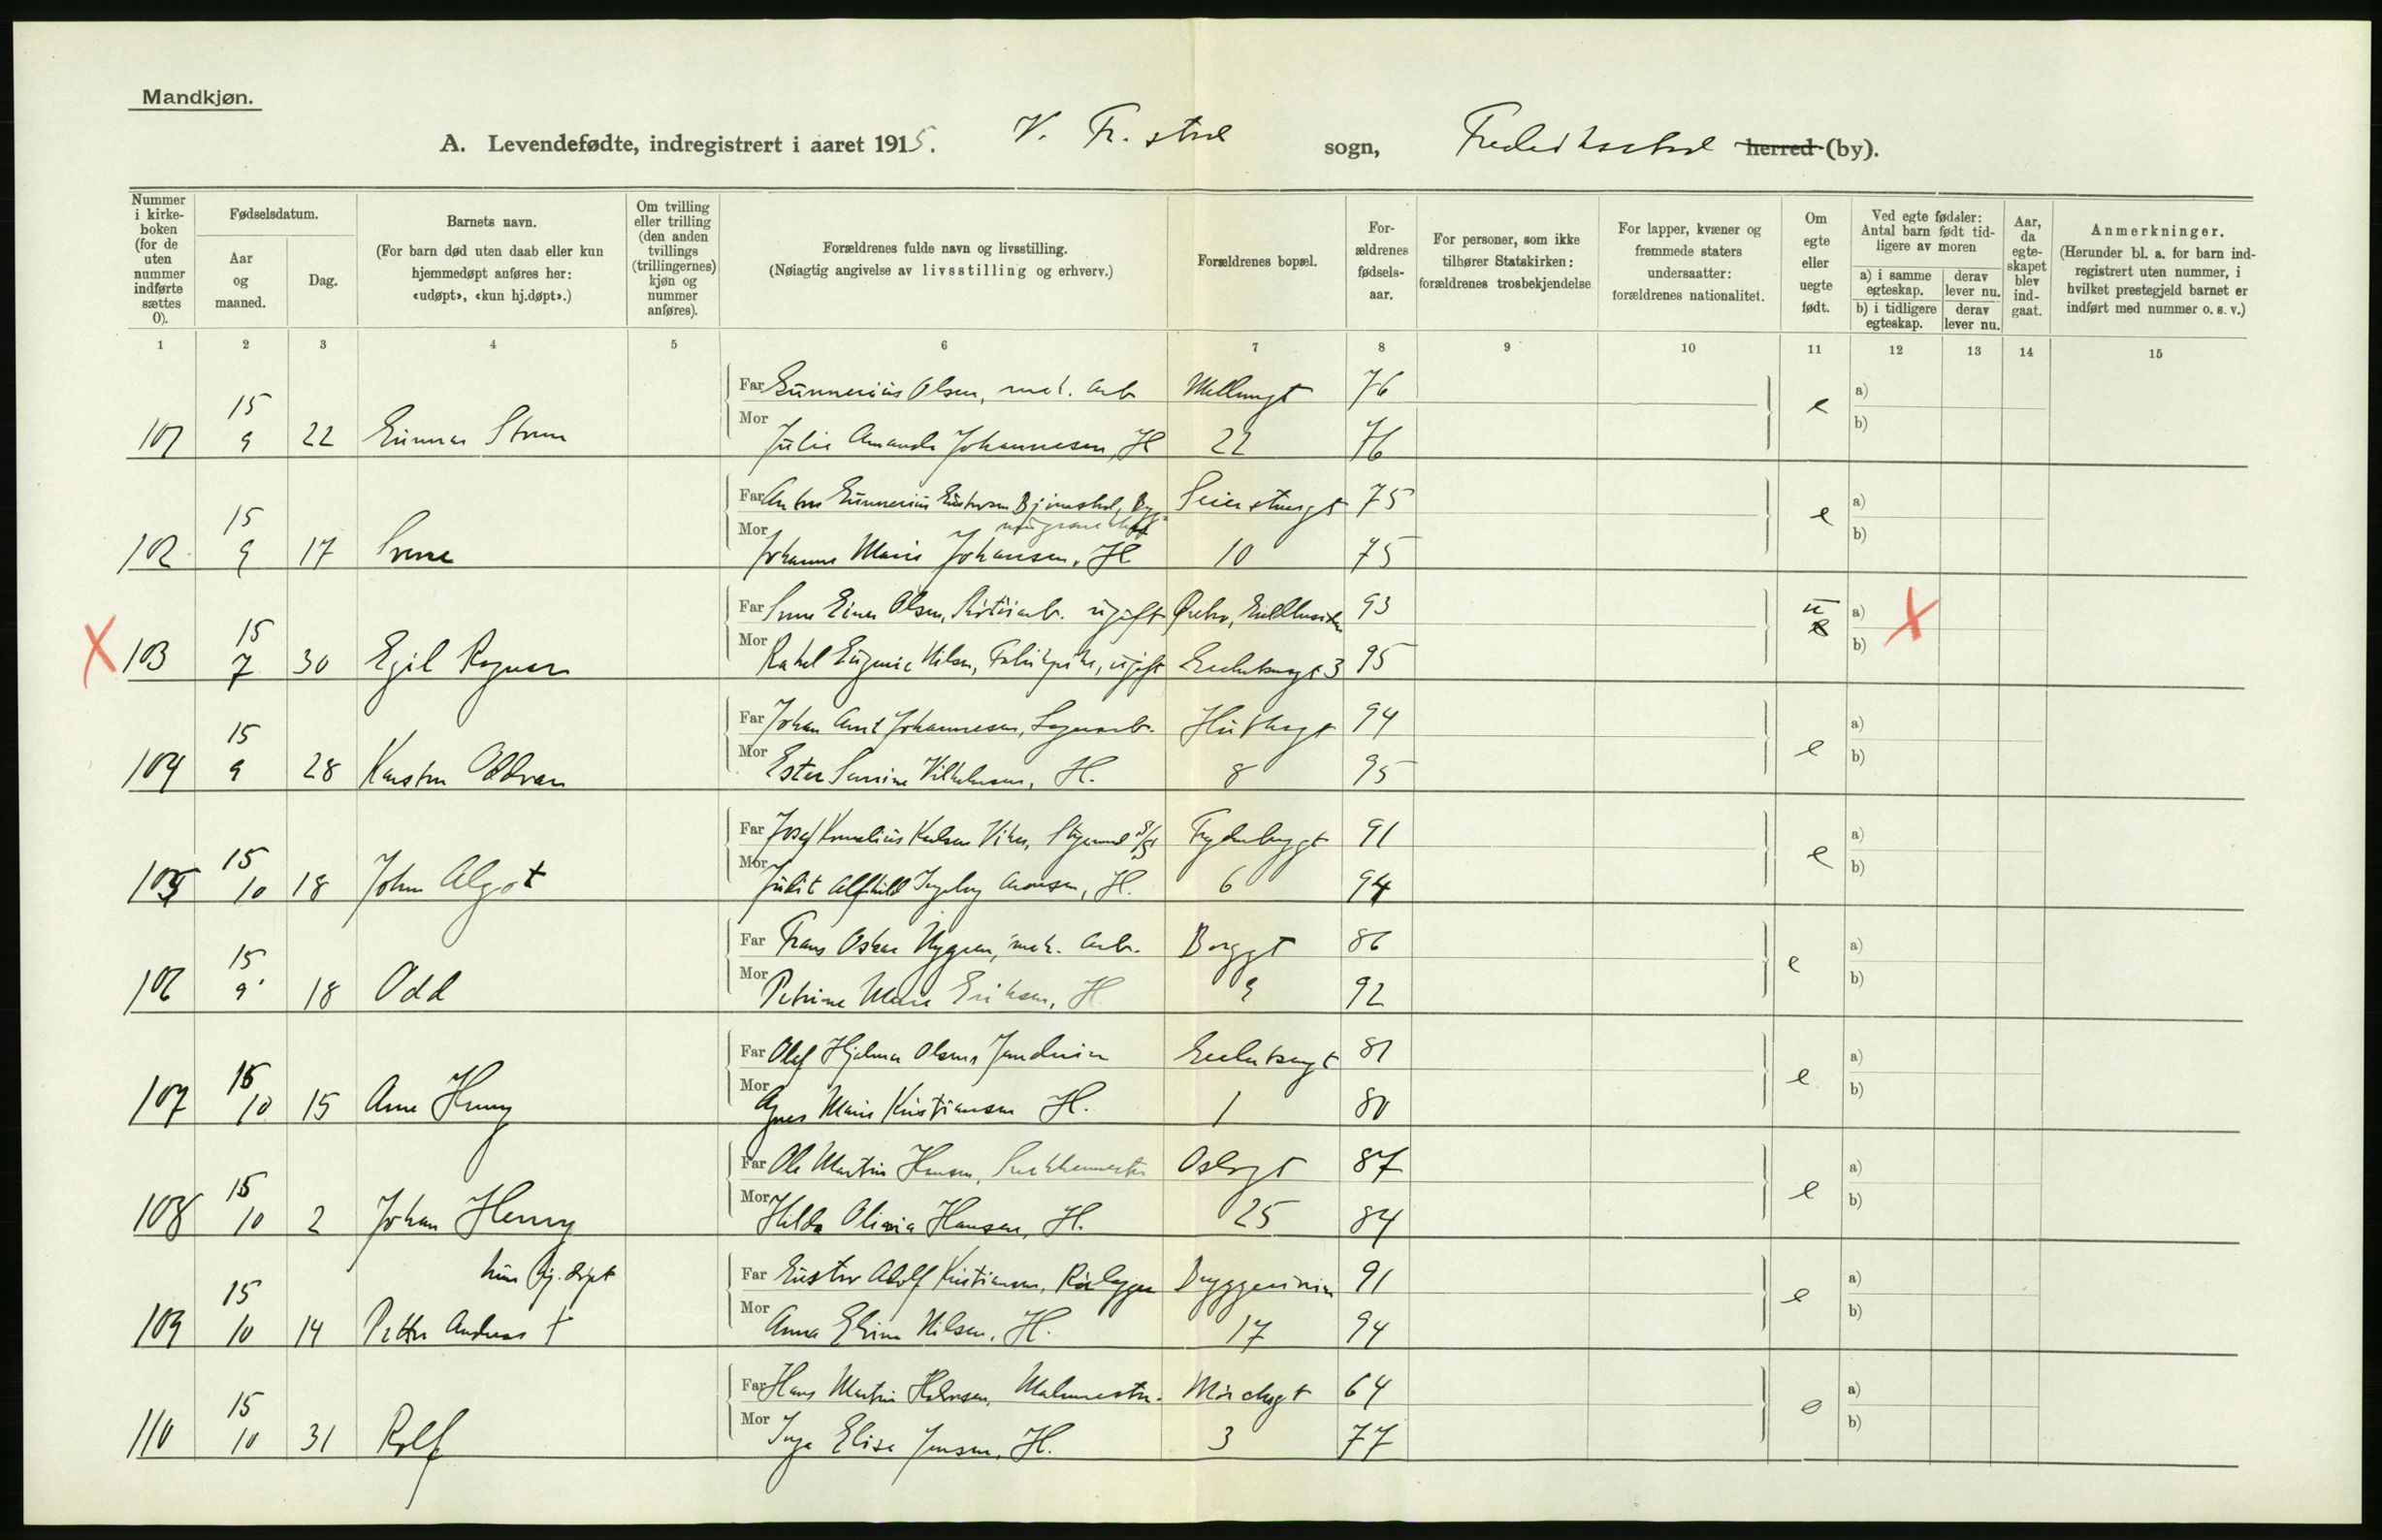 Mandkjøn.
A. Levendefødte, indregistrert i aaret 1915. V. Fr. stad sogn, Fredrikstad herred (by).
Nummer i kirkeboken (for de uten nummer indførte sættes 0).
Fødselsdatum.
Aar og maaned.
Dag.
Barnets navn.
(For barn død uten daab eller kun hjemmedøpt anføres her: «udøpt», «kun hj.døpt».)
Om tvilling eller trilling (den anden tvillings (trillingernes) kjøn og nummer anføres).
Forældrenes fulde navn og livsstilling.
(Nøiagtig angivelse av livsstilling og erhverv.)
Forældrenes bopæl.
Forældrenes fødselsaar.
For personer, som ikke tilhører Statskirken: forældrenes trosbekjendelse
For lapper, kvæner og fremmede staters undersaatter: forældrenes nationalitet.
Om egte eller uegte født.
Ved egte fødsler: Antal barn født tidligere av moren
a) i samme egteskap.
derav lever nu.
b) i tidligere egteskap.
derav lever nu.
Aar, da egteskapet blev indgaat.
Anmerkninger.
(Herunder bl. a. for barn indregistrert uten nummer, i hvilket prestegjeld barnet er indført med nummer o. s. v.)
1 2 3 4 5 6 7 8 9 10 11 12 13 14 15
Far Gunnerius Olsen, mek. Arb 76
15 e a)
101 9 22 Gunnar Strøm Mor Julie Amanda Johannesen, H 22 76 b)
Far Anton Gunnerius Seierstensgt 75
15 e a)
102 9 17 Sverre Mor Johanne Marie Johansen, H 10 75 b)
Far Einar Olsen, ugift 93
X 15 u a) X
103 7 30 Egil Ragnar Mor Rakel Eugenie Nilsen, ugift 3 95 b)
Far Johan Arnt Johannesen, 94
15 e a)
104 9 28 Karsten Oddvar Mor Ester Vilhelmsen, H. 8 95 b)
Far Josef Kornelius Karlsen 91
15 e a)
105 10 18 John Algot Mor Judit Alfhild Ingeborg Aronsen, H. 6 94 b)
Far Frans Oskar Nygren, mek. Arb. Borggt 86
15 e a)
106 9 18 Odd Mor Petrine Marie Eriksen, H 9 92 b)
Far Olaf Hjalmar Olsen 81
15 e a)
107 10 15 Arne Mor Agnes Marie Kristiansen H. 1 80 b)
Far Ole Martin Hansen, Oslogt 87
15 e a)
108 10 2 Johan Henry Mor Hilda Olivia Hansen, H. 25 84 b)
kun hj. døpt Far Gustav Adolf Kristiansen, Rørlægger 91
15 e a)
109 10 14 Petter Andreas † Mor Anna Nilsen, H. 17 94 b)
Far Hans Martin Halvorsen, Malermester. 64
15 e a)
110 10 31 Rolf Mor Inga Elise Jensen, H. 3 77 b)